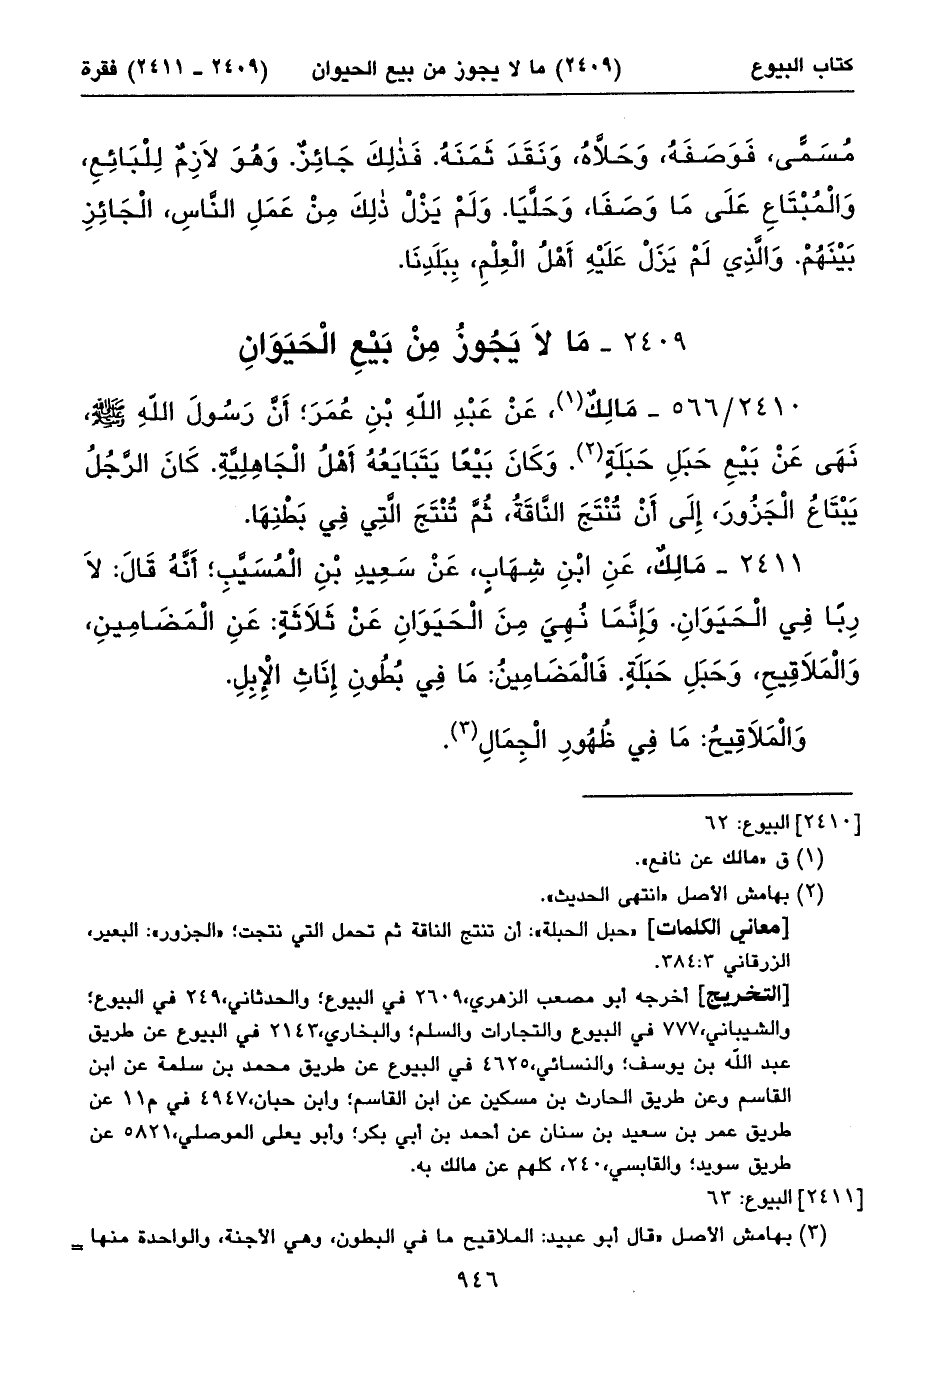 كتاب البيوع (٢٤٠٩) ما لا يجوز من بيع الحيوان (٢٤٠٩ - ٢٤١١) فقرة
مُسَمًّى، فَوَصَفَهُ، وَحَلَّاهُ، وَنَقَدَ ثَمَنَهُ. فَذٰلِكَ جَائِزٌ. وَهُوَ لاَزِمٌ لِلْبَائِعِ،
وَالْمُبْتَاعِ عَلَى مَا وَصَفَا، وَحَلَّيَا. وَلَمْ يَزَلْ ذٰلِكَ مِنْ عَمَلِ النَّاسِ، الْجَائِزِ
بَيْنَهُمْ. وَالَّذِي لَمْ يَزَلْ عَلَيْهِ أَهْلُ الْعِلْمِ، بِبَلَدِنَا.
٢٤٠٩ - مَا لاَ يَجُوزُ مِنْ بَيْعِ الْحَيَوَانِ
٥٦٦/٢٤١٠ - مَالِكٌ(١)، عَنْ عَبْدِ اللَّهِ بْنِ عُمَرَ؛ أَنَّ رَسُولَ اللَّهِ ﷺ،
نَهَى عَنْ بَيْعِ حَبَلِ حَبَلَةٍ(٢). وَكَانَ بَيْعًا يَتَبَايَعُهُ أَهْلُ الْجَاهِلِيَّةِ. كَانَ الرَّجُلُ
يَبْتَاعُ الْجَزُورَ، إِلَى أَنْ تُنْتَجَ النَّاقَةُ، ثُمَّ تُنْتَجَ الَّتِي فِي بَطْنِهَا.
٢٤١١ - مَالِكٌ، عَنِ ابْنِ شِهَابٍ، عَنْ سَعِيدِ بْنِ الْمُسَيَّبِ؛ أَنَّهُ قَالَ: لاَ
رِبًا فِي الْحَيَوَانِ. وَإِنَّمَا نُهِيَ مِنَ الْحَيَوَانِ عَنْ ثَلاَثَةٍ: عَنِ الْمَضَامِينِ،
وَالْمَلاَقِيحِ، وَحَبَلِ حَبَلَةٍ. فَالْمَضَامِينُ: مَا فِي بُطُونِ إِنَاثِ الْإِبِلِ.
وَالْمَلاَقِيحُ: مَا فِي ظُهُورِ الْجِمَالِ(٣).
[٢٤١٠] البيوع: ٦٢
(١) ق «مالك عن نافع».
(٢) بهامش الأصل «انتهى الحديث».
[معاني الكلمات] «حبل الحبلة»: أن تنتج الناقة ثم تحمل التي نتجت؛ «الجزور»: البعير،
الزرقاني ٣٨٤:٣.
[التخريج] أخرجه أبو مصعب الزهري،٢٦٠٩ في البيوع؛ والحدثاني،٢٤٩ في البيوع؛
والشيباني،٧٧٧ في البيوع والتجارات والسلم؛ والبخاري،٢١٤٣ في البيوع عن طريق
عبد اللَّه بن يوسف؛ والنسائي،٤٦٢٥ في البيوع عن طريق محمد بن سلمة عن ابن
القاسم وعن طريق الحارث بن مسكين عن ابن القاسم؛ وابن حبان،٤٩٤٧ في م١١ عن
طريق عمر بن سعيد بن سنان عن أحمد بن أبي بكر؛ وأبو يعلى الموصلي،٥٨٢١ عن
طريق سويد؛ والقابسي،٢٤٠، كلهم عن مالك به.
[٢٤١١] البيوع: ٦٣
(٣) بهامش الأصل «قال أبو عبيد: الملاقيح ما في البطون، وهي الأجنة، والواحدة منها =
٩٤٦